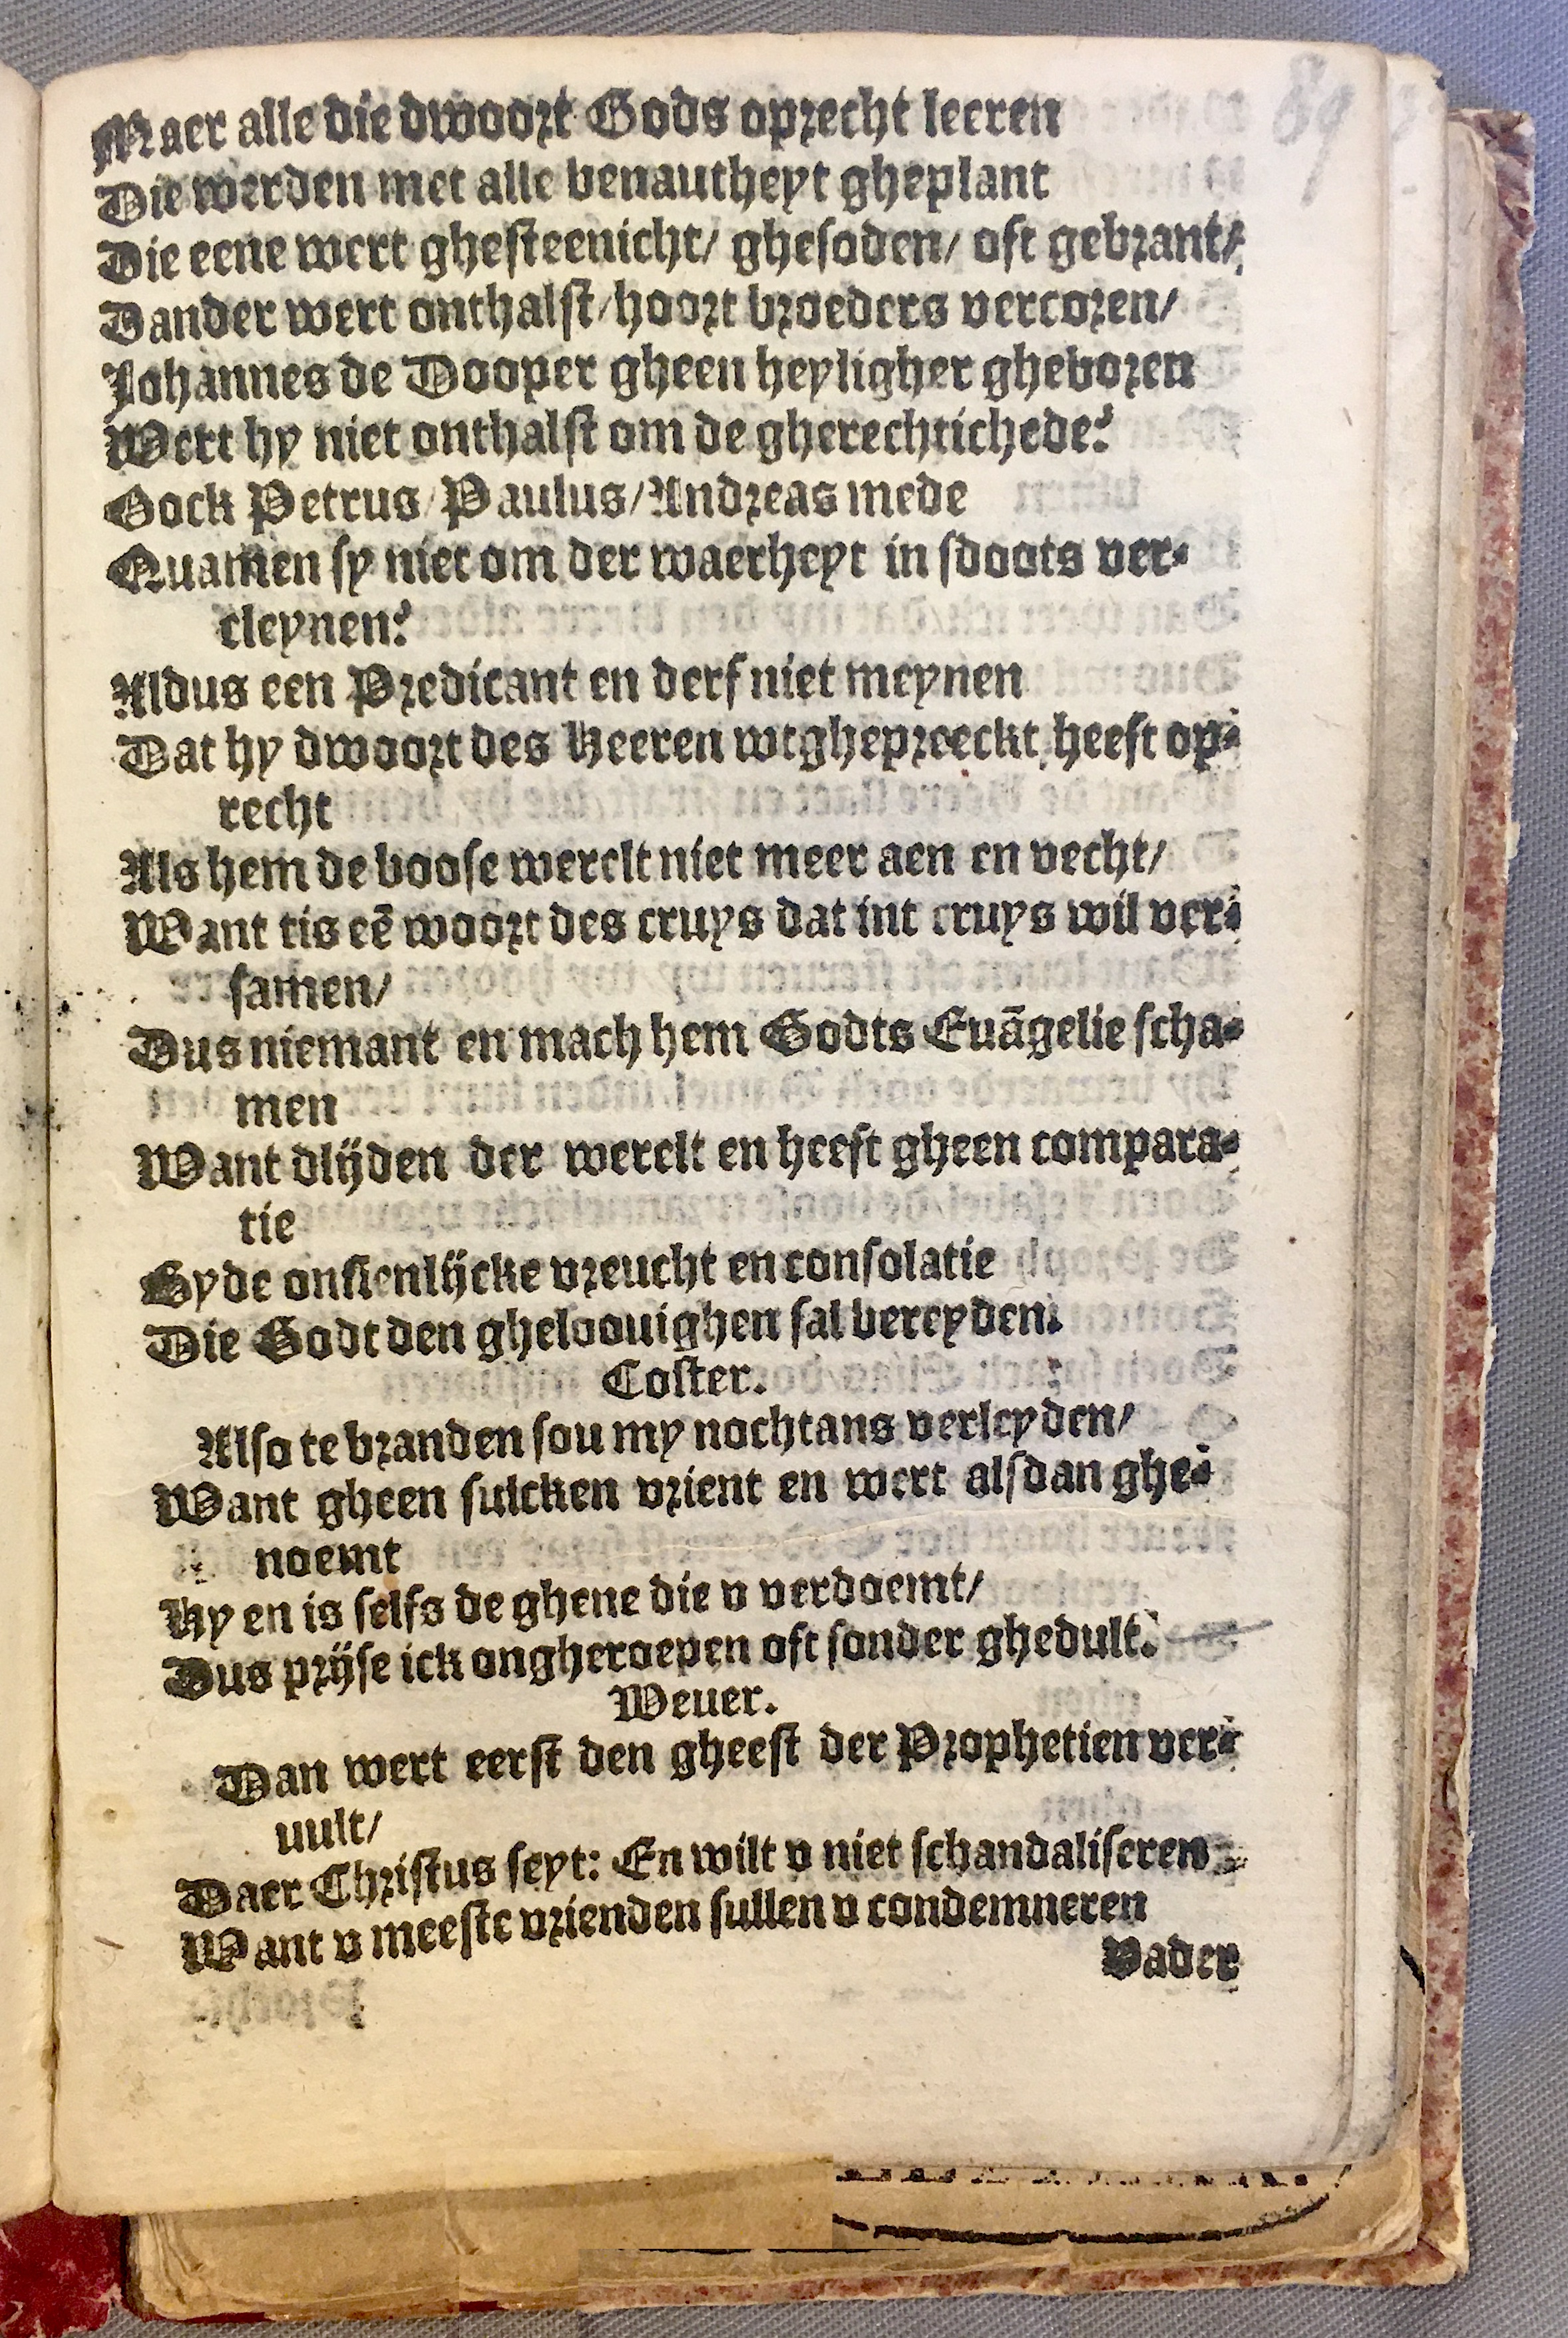 89
Maer alle die dwoort Gods oprecht leeren
Die werden met alle benautheyt gheplant
Die eene wert ghesteenicht/ ghesoden/ oft gebrant/
Dander wert onthalst/ hoort broeders vercoren/
Johannes de Dooper gheen heyligher gheboren
Wert hy niet onthalst om de gherechtichede?
Oock Petrus/ Paulus/ Andreas mede
Quamen sy niet om der waerheyt in sdoots ver-
cleynen?
Aldus een Predicant en derf niet meynen
Dat hy dwoort des Heeren wtghepreeckt heeft op-
recht
Als hem de boose werelt niet meer aen en vecht/
Want tis eē woort des cruys dat int cruys wil ver-
samen/
Dus niemant en mach hem Godts Euāgelie scha-
men
Want dlijden der werelt en heeft gheen compara-
tie
By de onsienlijcke vreucht en consolatie
Die Godt den gheloouighen sal bereyden.
Coster.
Also te branden sou my nochtans verleyden/
Want gheen sulcken vrient en wert alsdan ghe-
noemt
Hy en is selfs de ghene die v verdoemt/
Dus prijse ick ongheroepen oft sonder ghedult.
Weuer.
Dan wert eerst den gheest der Prophetien ver-
uult/
Daer Christus seyt: En wilt v niet schandaliseren
Want v meeste vrienden sullen v condemneren
Vader